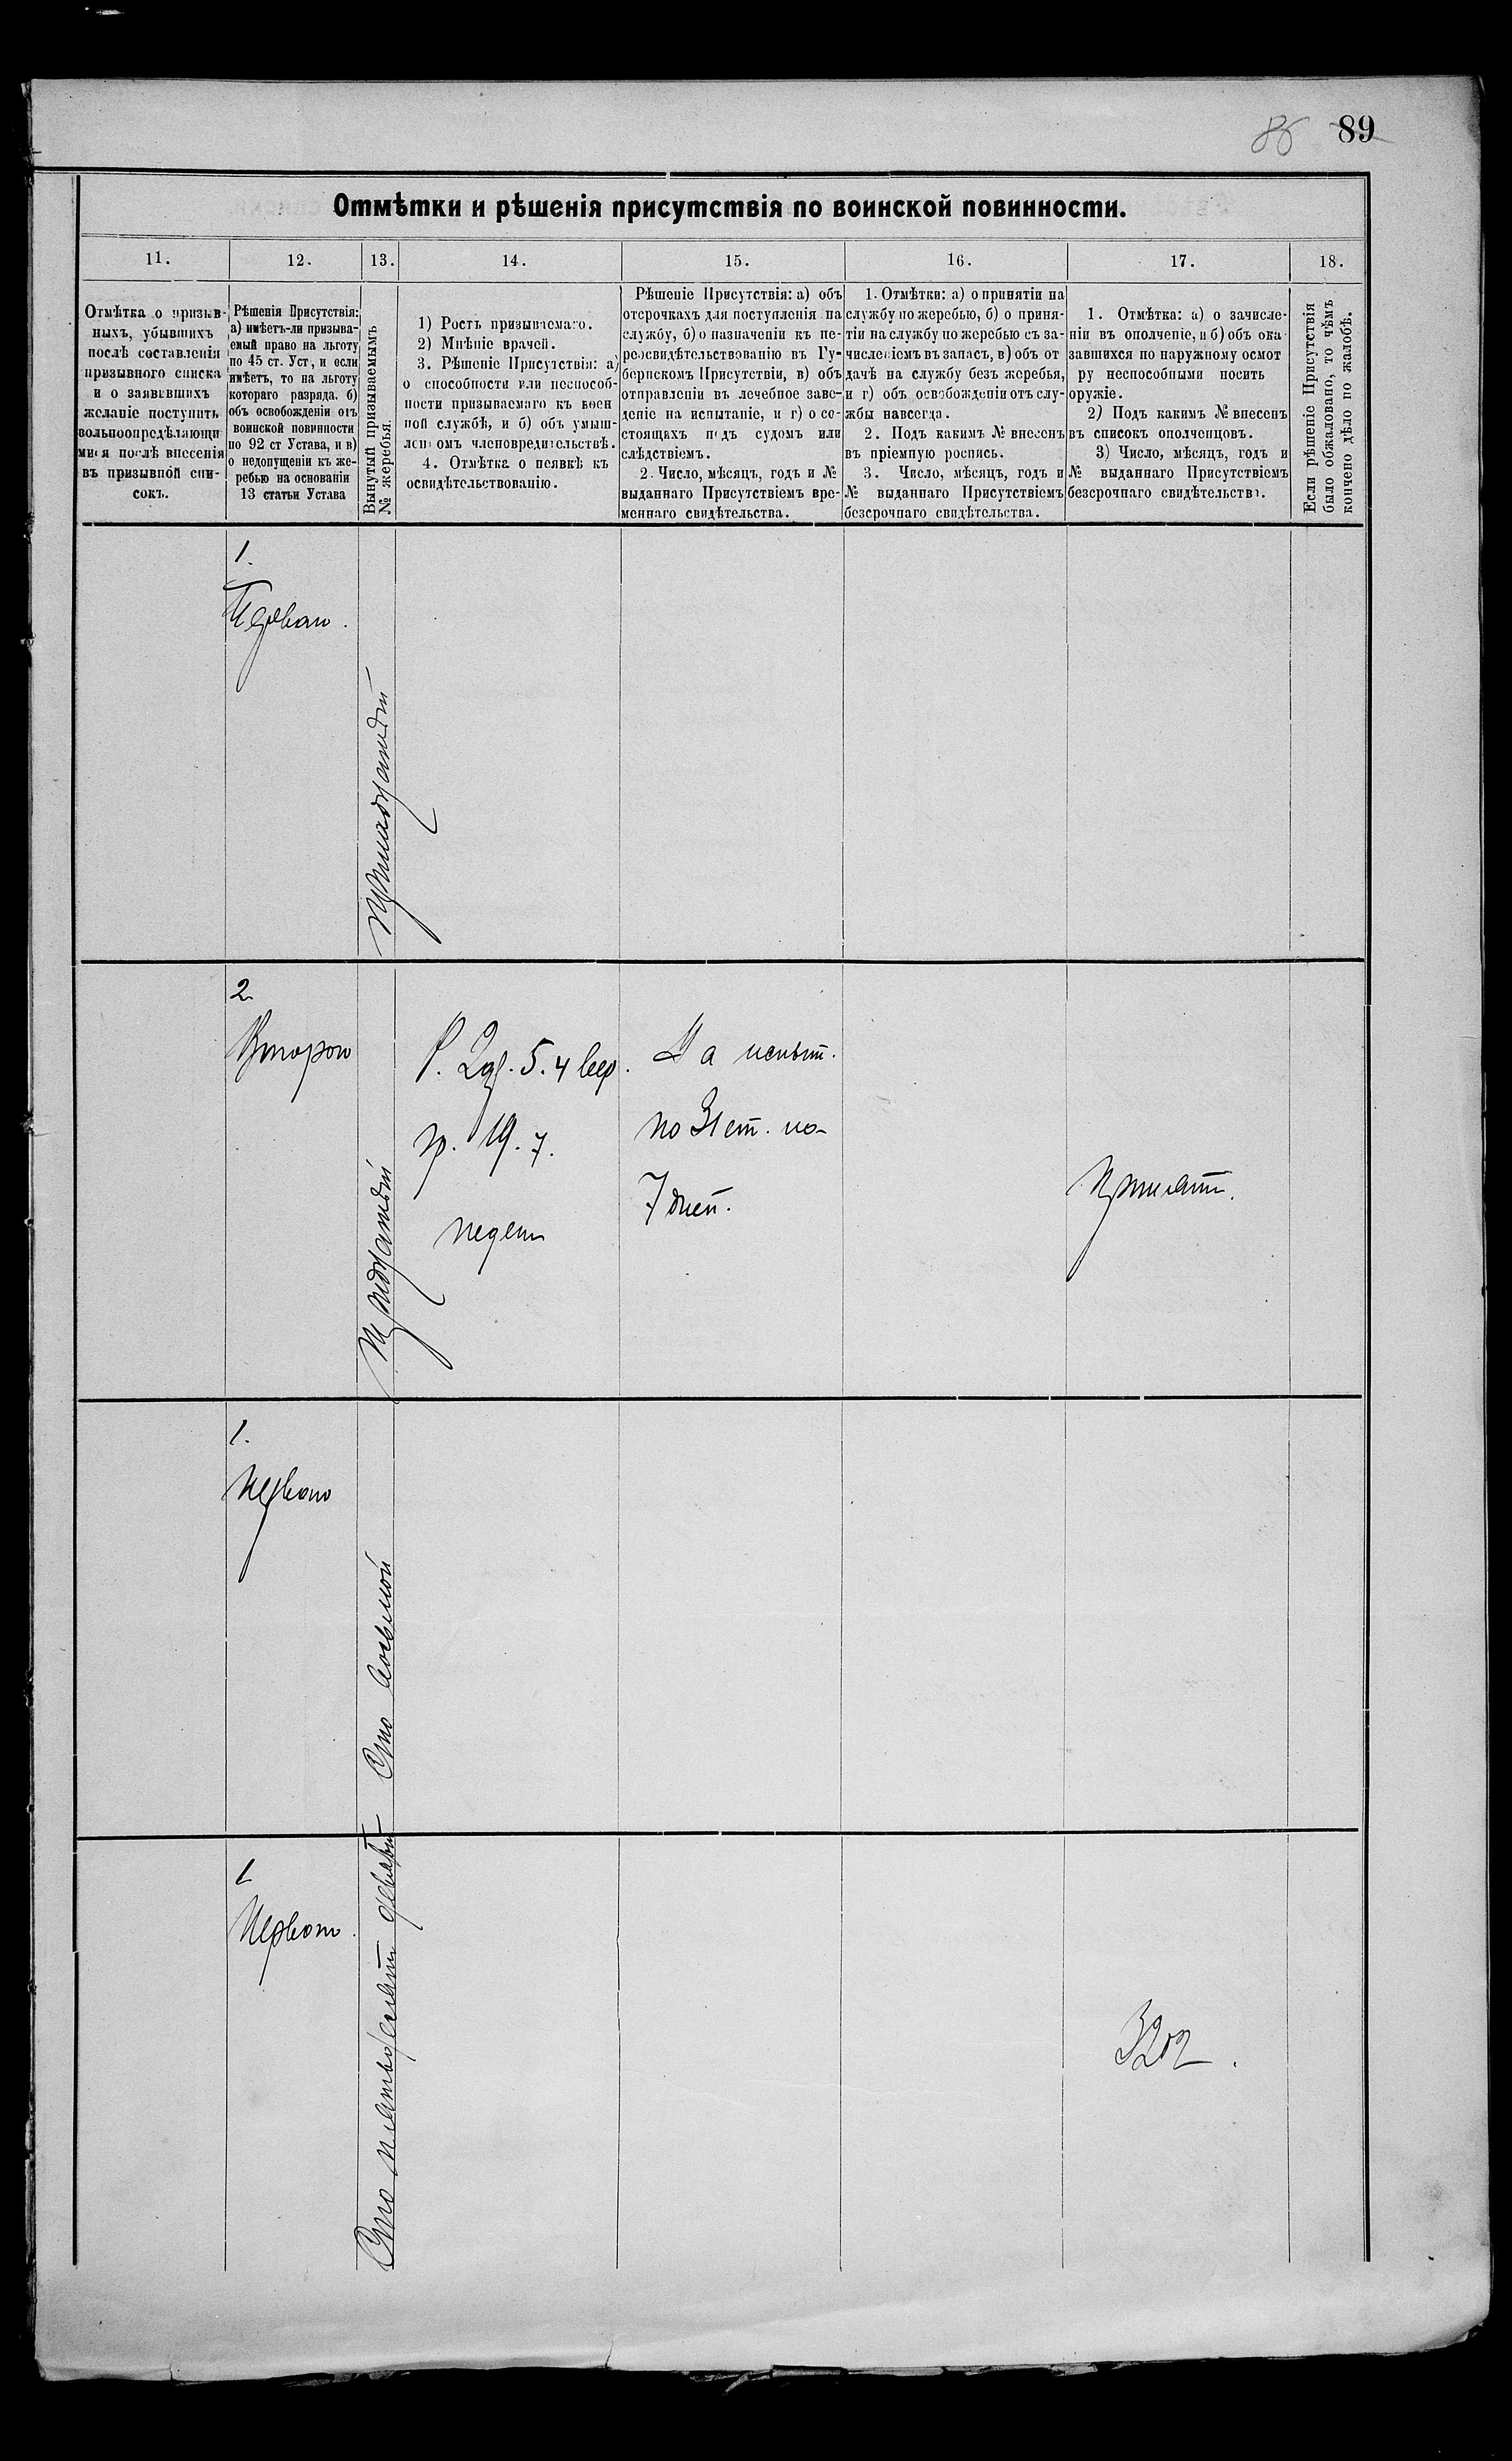 86 89
Отмѣтки и рѣшенія присутствія по воинской повинности.
11. 12. 13. 14. 15. 16. 17. 18.
Отмѣтка о призыв-
ныхъ, убывшихъ
послѣ составленія
призывного списка
и о заявившихъ
желаніе поступить
вольноопредѣляющи
мися послѣ внесенія
въ призывной спи-
сокъ.
Рѣшенія Присутствія:
а) имѣетъ-ли призыва-
емый право на льготу
по 45 ст. Уст, и если
имѣетъ, то на льготу
котораго разряда. б)
объ освобожденіи отъ
воинской повинности
по 92 ст Устава, и в)
о недопущеніи къ же-
ребью на основаніи
13 статьи Устава
Вынутый призываемымъ
№ жеребья.
1) Ростъ призываемаго.
2) Мнѣніе врачей.
3. Рѣшеніе Присутствія: а)
о способности или неспособ-
ности призываемаго къ воен
ной службѣ, и б) объ умыш-
ленномъ членовредительствѣ.
4. Отмѣтка о неявкѣ къ
освидѣтельствованію.
Рѣшеніе Присутствія: а) объ
отсрочкахъ для поступленія на
службу, б) о назначеніи къ пе-
реосвидѣтельствованію въ Гу-
бернскомъ Присутствіи, в) объ
отправленіи въ лечебное заве-
деніе на испытаніе, и г) о со-
стоящихъ подъ судомъ или
слѣдствіемъ.
2. Число, мѣсяцъ, годъ и №
выданнаго Присутствіемъ вре-
меннаго свидѣтельства.
1. Отмѣтки: а) о принятіи на
службу по жеребью, б) о приня-
тіи на службу по жеребью съ за-
численіемъ въ запасъ, в) объ от
дачѣ на службу безъ жеребья,
и г) объ освобожденіи отъ слу-
жбы навсегда.
2. Подъ какимъ № внесенъ
въ пріемную роспись.
3. Число, мѣсяцъ, годъ и
№ выданнаго Присутствіемъ
безсрочнаго свидѣтельства.
1. Отмѣтка: а) о зачисле-
ніи въ ополченіе, и б) объ ока
завшихся по наружному осмот
ру неспособными носить
оружіе.
2) Подъ какимъ № внесенъ
въ списокъ ополченцовъ.
3) Число, мѣсяцъ, годъ и
№ выданнаго Присутствіемъ
безсрочнаго свидѣтельства.
Если рѣшеніе Присутствія
было обжаловано, то чѣмъ
кончено дѣло по жалобѣ.
1.
Перваго.
2
Второго
Р. 2 ар. 5.4 вер.
гр. 19.7.
На испыт.
по 31 ст. на
7 дней.
Принятъ.
1.
Перваго
Сто восьмой
1
Перваго.
Сто пятьдесятъ девятый
3202.